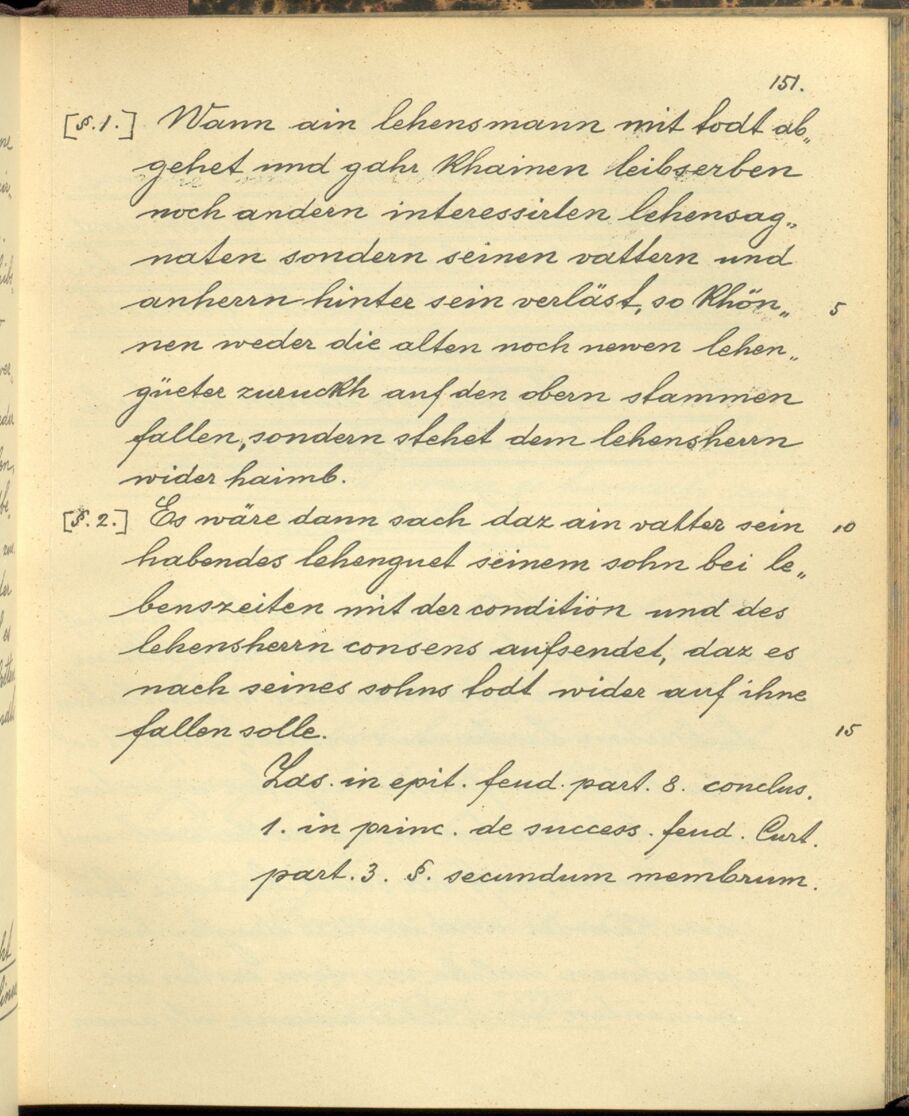 151.
[§.1.] Wann ain lehensmann mit todt ab„
gehet und gahr khainen leibserben
noch andern interessirten lehensag„
naten sondern seinen vattern und
anherrn hinter sein verläst, so khön„ 5
nen weder die alten noch newen lehen„
güeter zuruckh auf den obern stammen
fallen, sondern stehet dem lehensherrn
wider haimb.
[§.2.] Es wäre dann sach daz ain vatter sein 10
habendes lehenguet seinem sohn bei le„
benszeiten mit der condition und des
lehensherrn consens aufsendet, daz es
nach seines sohns todt wider auf ihne
fallen solle. 15
Zas. in epit. feud. part. 8. conclus.
1. in princ. de success. feud. Curt.
part. 3. §. secundum membrum.